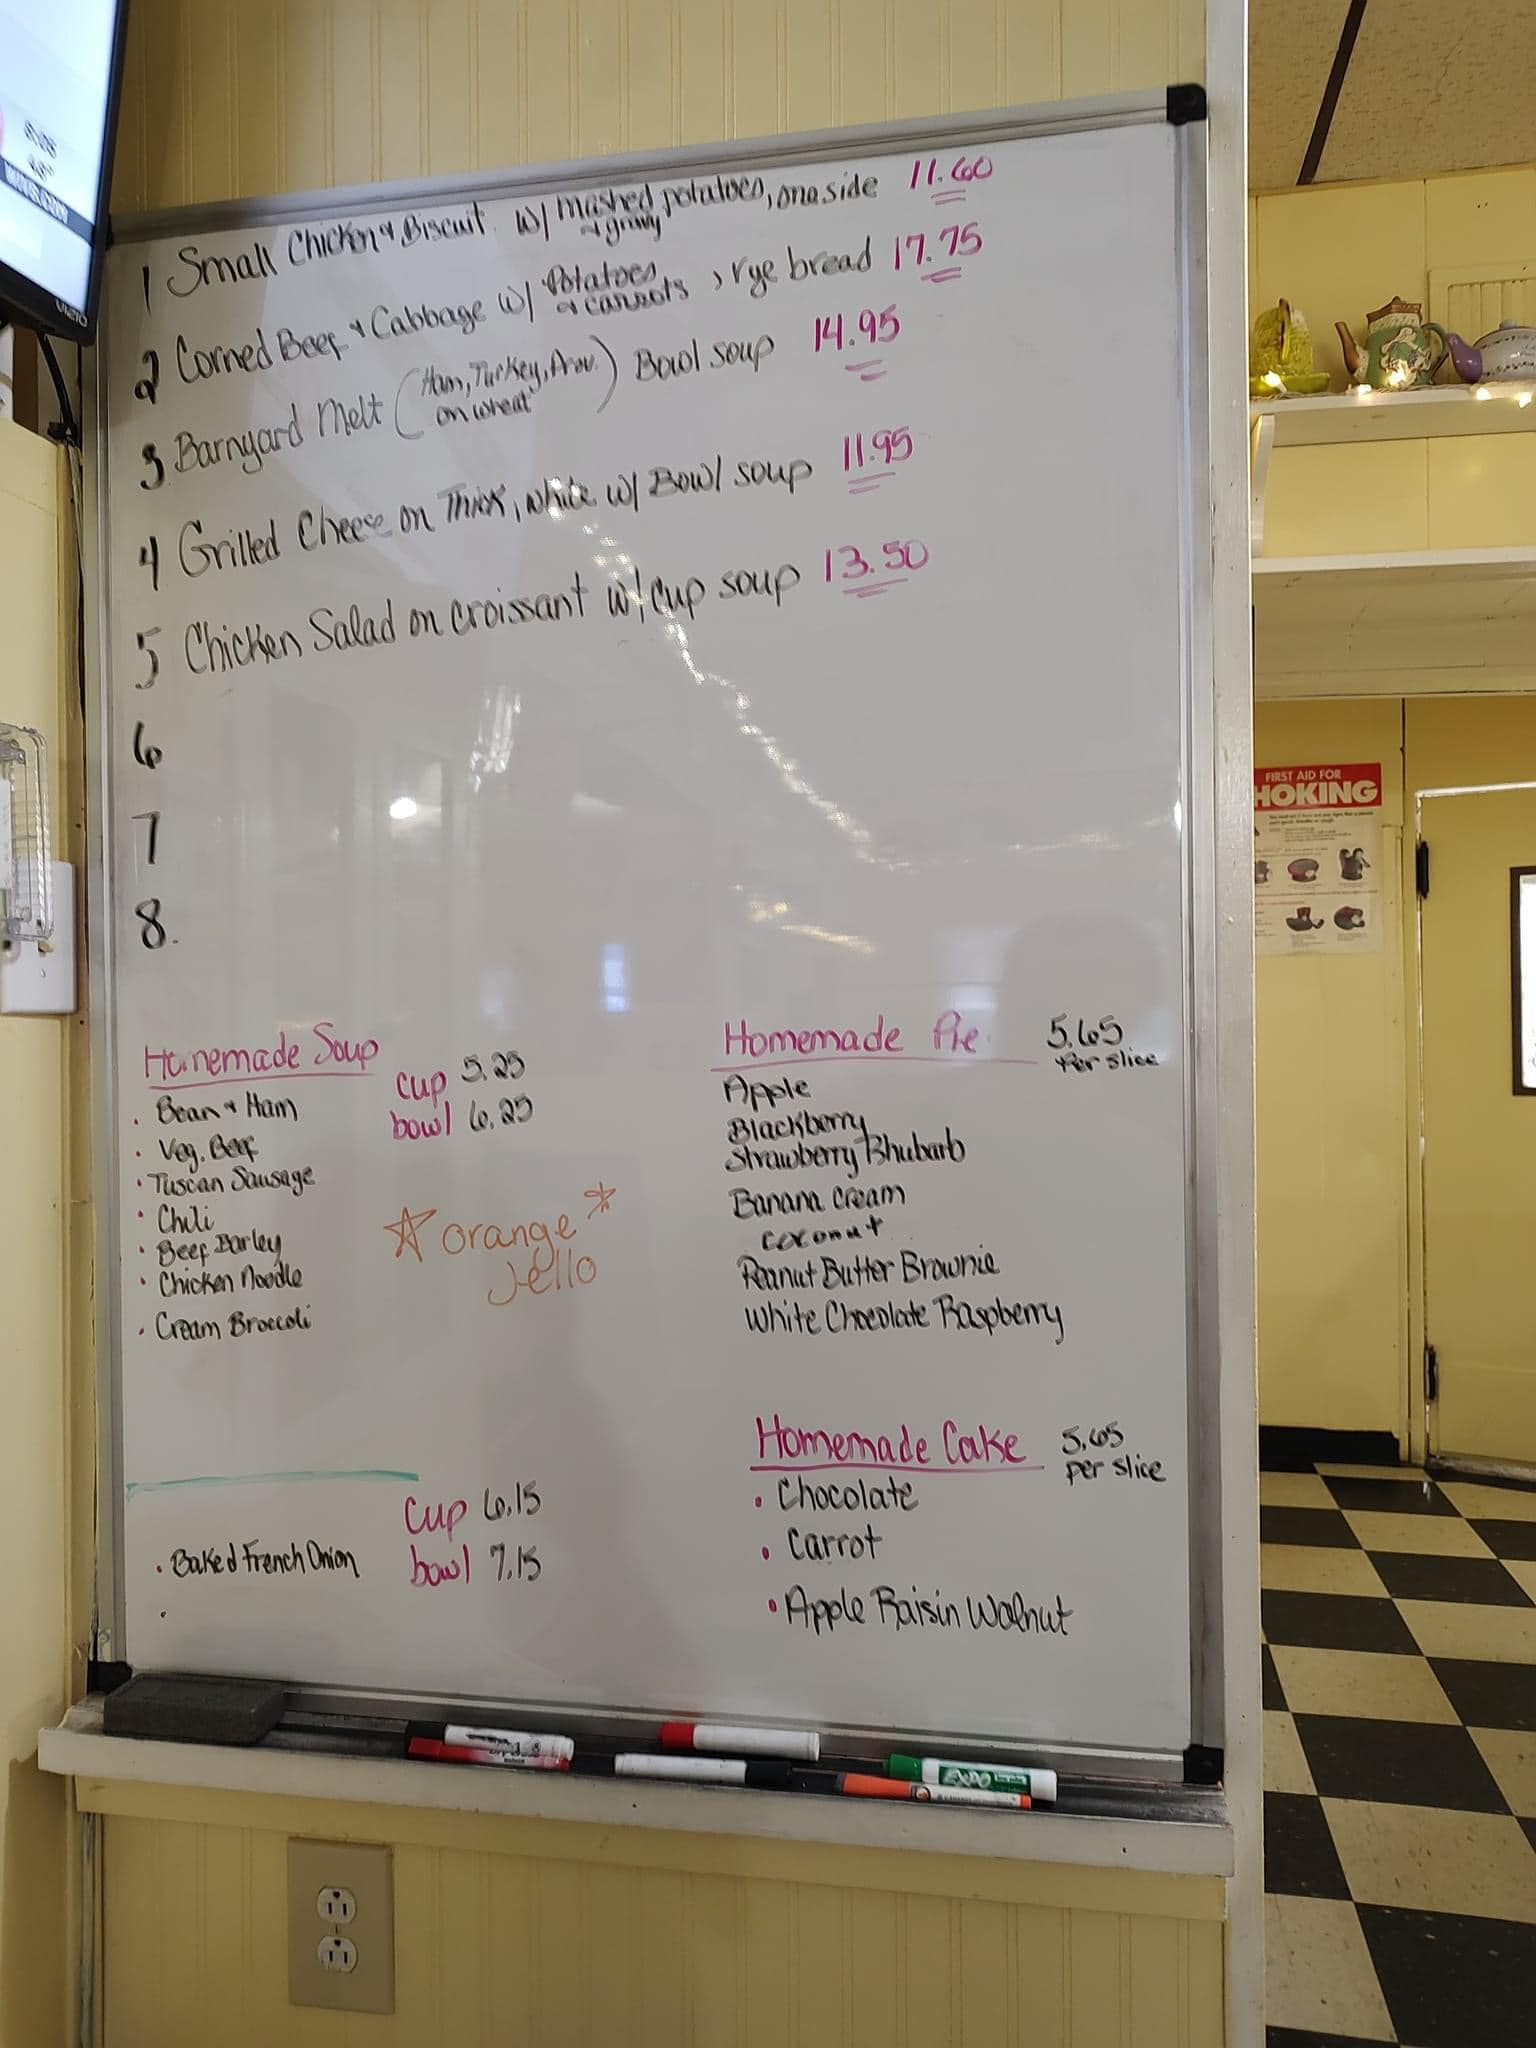 1 Small Chicken & Biscuit w/ mashed potatoes, one side 11.60
& gravy
2 Corned Beef & Cabbage w/ Potatoes & carrots, rye bread 17.75
3 Barnyard Melt (Ham, Turkey, Prov. on wheat) Bowl soup 14.95
4 Grilled Cheese on Thick, white w/ Bowl soup 11.95
5 Chicken Salad on croissant w/ cup soup 13.50
6
7
8.
Homemade Soup
cup 5.25
bowl 6.25
• Bean & Ham
• Veg. Beef
• Tuscan Sausage
• Chili
• Beef Barley
• Chicken Noodle
• Cream Broccoli
orange
Jello
cup 6.15
bowl 7.15
• Baked French Onion
Homemade Pie 5.65
Per slice
Apple
Blackberry
Strawberry Rhubarb
Banana Cream
coconut
Peanut Butter Brownie
White Chocolate Raspberry
Homemade Cake 5.65
per slice
• Chocolate
• Carrot
• Apple Raisin Walnut
EXPO
VIZIO
FIRST AID FOR
HOKING